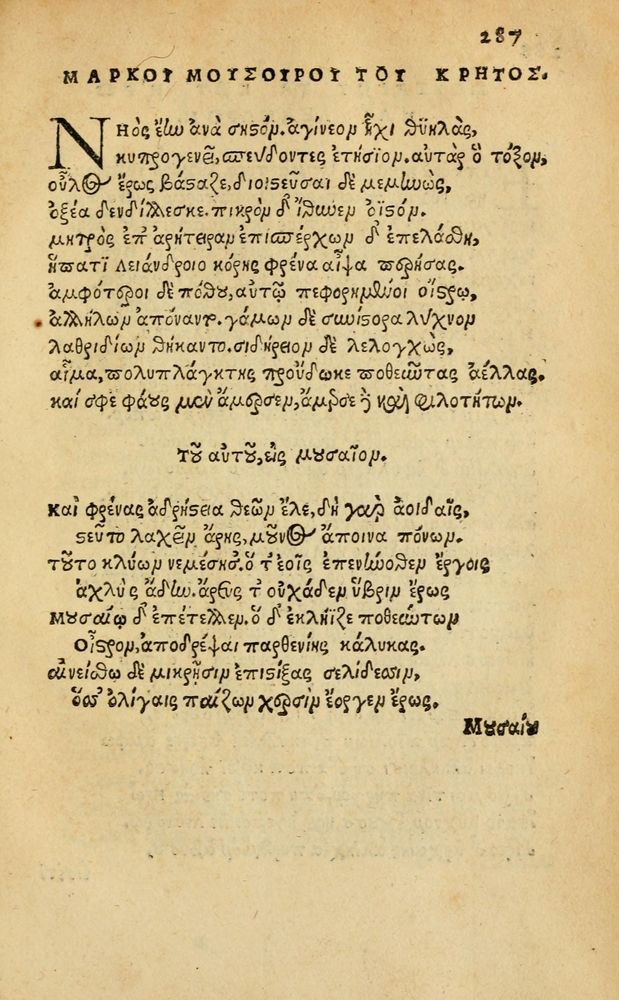 287
ΜΑΡΚΟΥ ΜΟΥΣΟΥΡΟΥ ΤΟΥ ΚΡΗΤΟΣ.
Νηὸς ἔω ἀνὰ σηστόν. ἀγίνεον ἧχι θυηλὰς,
κυπρογενεῖ, σπεύδοντες ἐτήσιον. αὐτὰρ ὁ τόξον,
οὖλος ἔρως βάσταζε, διοϊστεῦσαι δὲ μεμαὼς,
ὀξέα δενδίλλεσκε. πικρὸν δ' ἴθυνεν ὀϊστόν.
μητρὸς ἐπ' ἀρήτειραν ἐπισπέρχων δ' ἐπελάσθη,
ἥπατι λειάνδροιο κόρης φρένα αἶψα πορήσας.
ἀμφότεροι δὲ πόθου, αὐτῷ πεφορημένοι οἴστρῳ,
ἀλλήλων ἀπόναντο. γάμων δὲ συνίστορα λύχνον
λαθριδίων θήκαντο. σιδήρειον δὲ λελογχὼς,
αἷμα, πολυπλάγκτης προὔδωκε ποθεῦντας ἀέλλας.
καί σφε φάους μὲν ἄμερσεν, ἄμερσε δὲ καὶ φιλοτήτων.
Τοῦ αὐτοῦ, εἰς μουσαῖον.
Καὶ φρένας ἀδρήστεια θεῶν ἕλε, δὴ γὰρ ἀοιδαῖς,
στεῦτο λαχεῖν ἄρης, μοῦνος ἄποινα πόνων.
τοῦτο κλύων νεμέσησε. ὁ τ' ἑοῖς ἐπενήνοθεν ἔργοις
ἀχλὺς ἄδην. ἄρεως τ' οὐχάδεν ὕβριν ἔρως
μουσαίῳ δ' ἐπέτελλεν. ὁ δ' ἐκλήϊζε ποθεύντων
Οἶστρον, ἀποδρέψαι παρθενίης κάλυκας.
αἰνείσθω δὲ μικρῇσιν ἐπιστίξας σελίδεσσιν,
ὅσσ' ὀλίγαις παίζων χερσὶν ἔοργεν ἔρως.
Μουσαίου